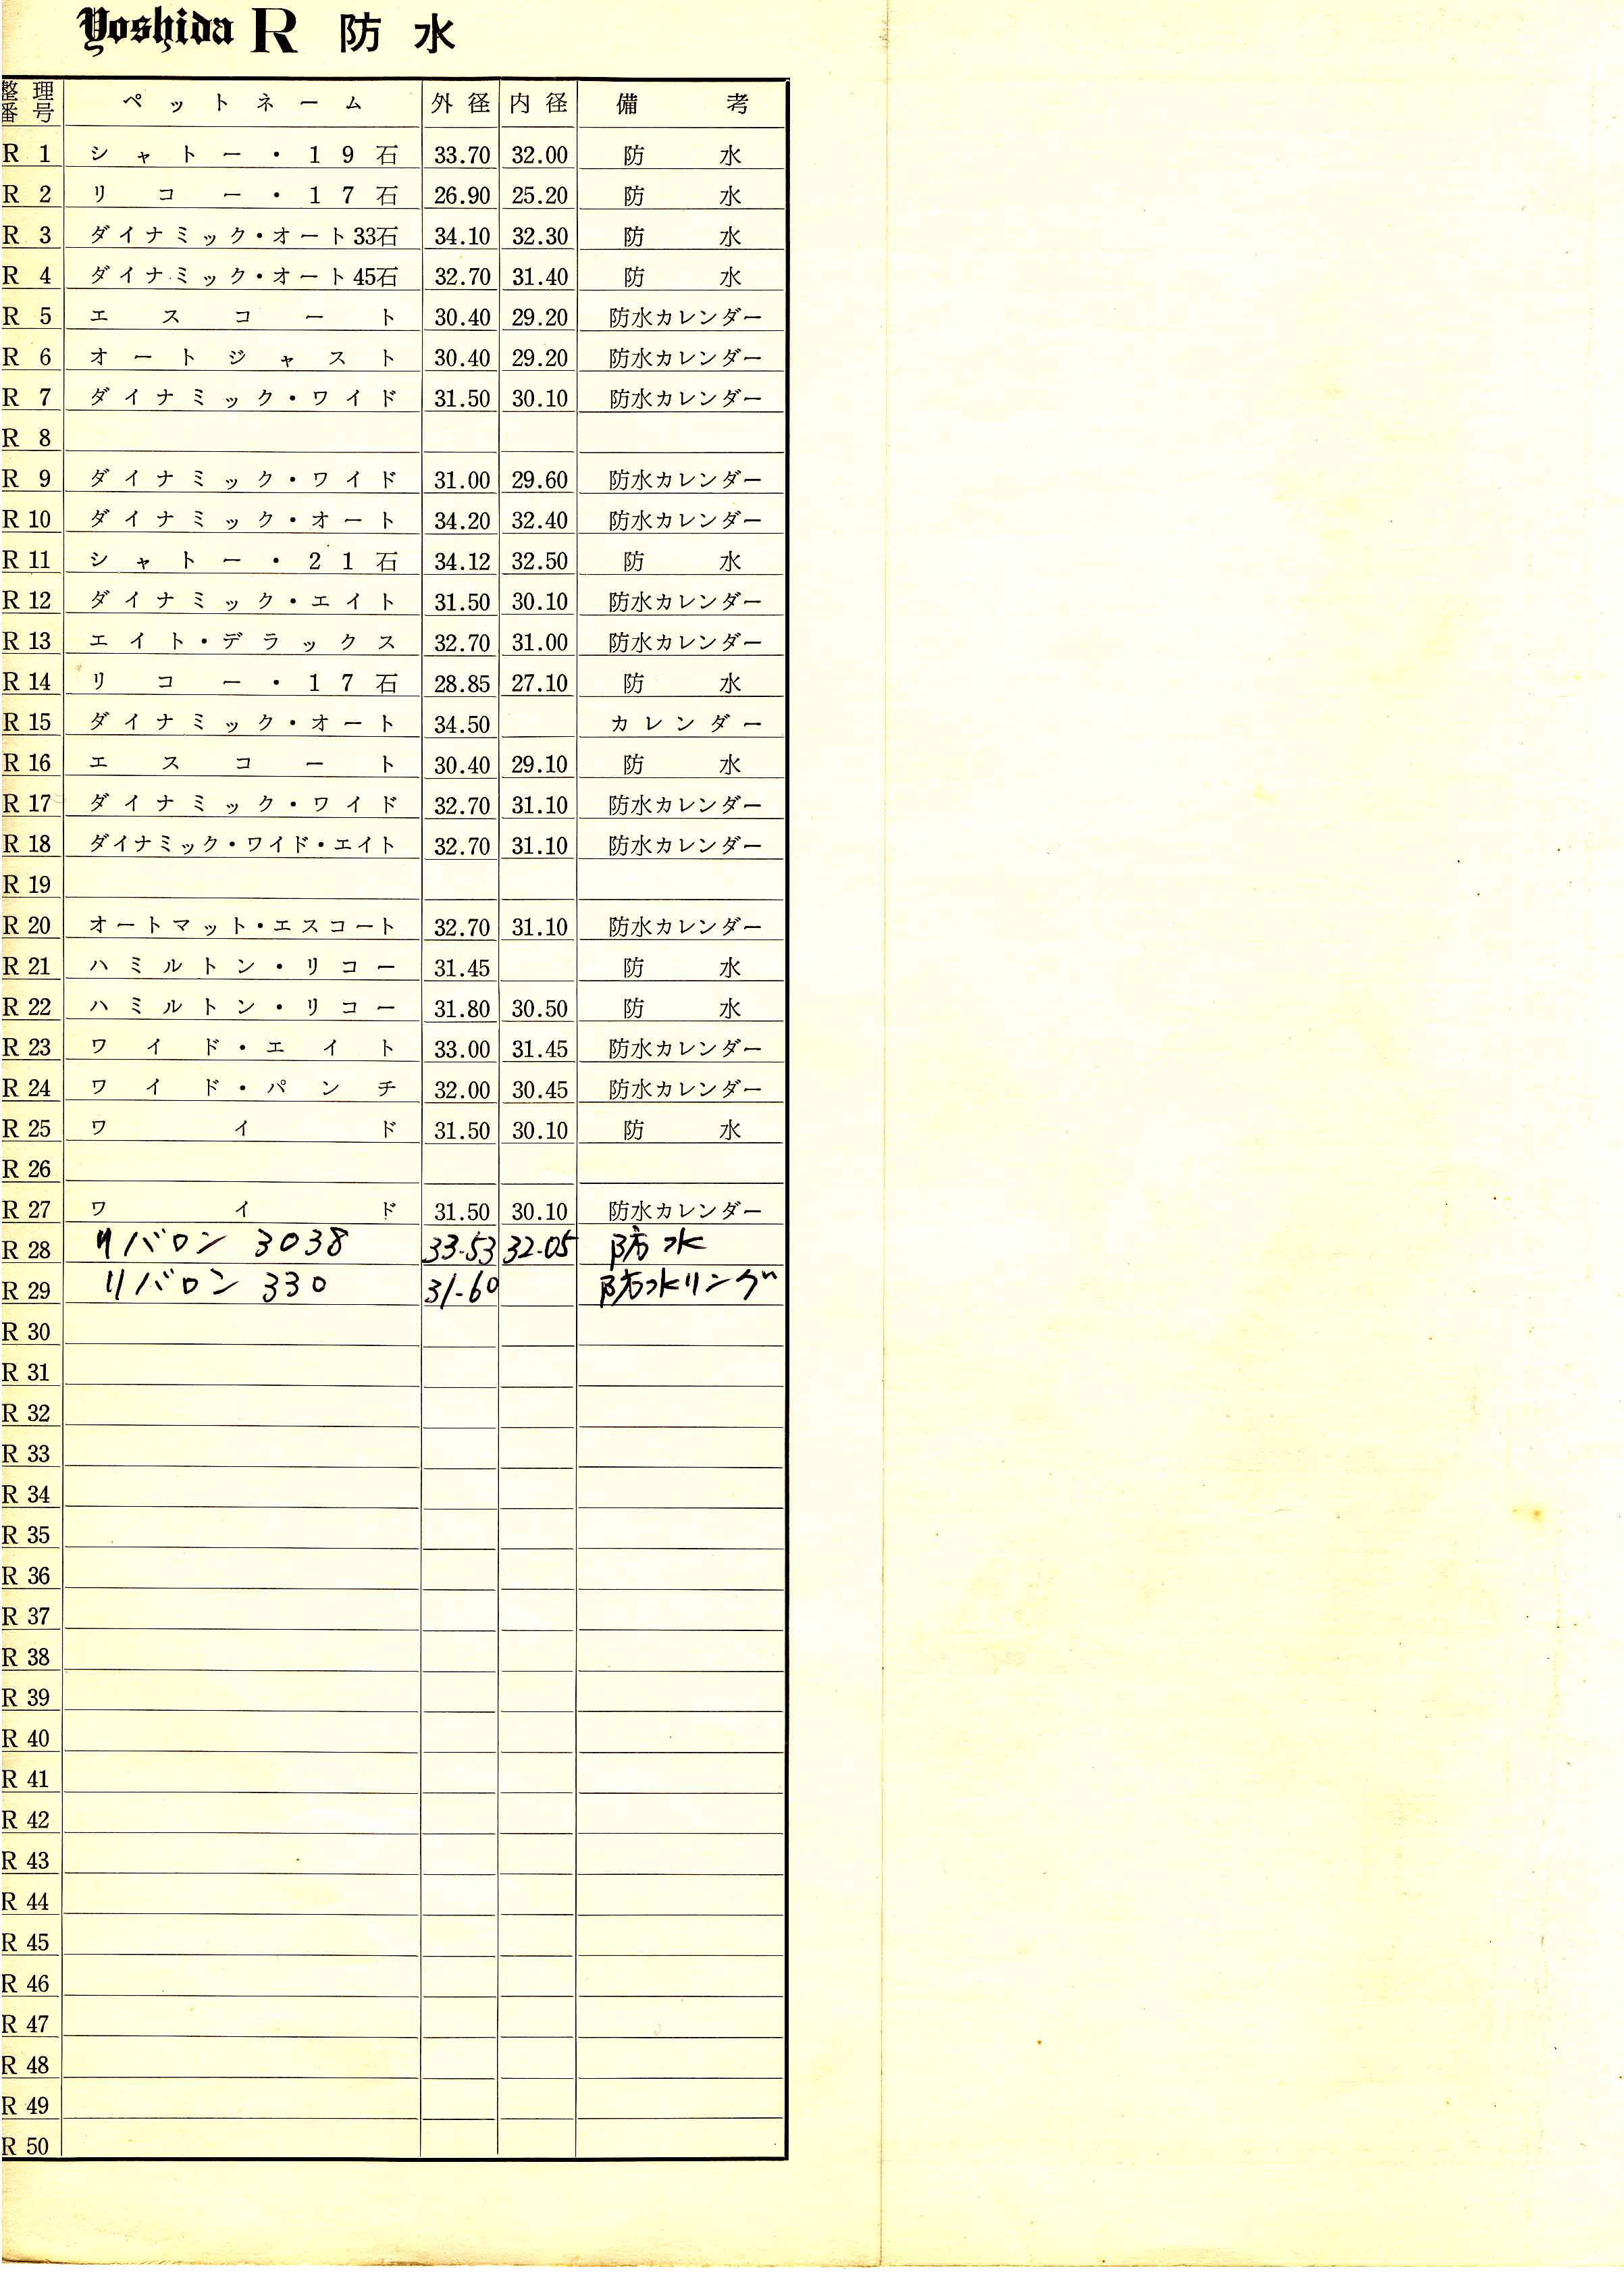 Yoshida R 防水
整理番号 ペットネーム 外径 内径 備考
R 1 シャトー・19石 33.70 32.00 防水
R 2 リコー・17石 26.90 25.20 防水
R 3 ダイナミック・オート33石 34.10 32.30 防水
R 4 ダイナミック・オート45石 32.70 31.40 防水
R 5 エスコート 30.40 29.20 防水カレンダー
R 6 オートジャスト 30.40 29.20 防水カレンダー
R 7 ダイナミック・ワイド 31.50 30.10 防水カレンダー
R 8
R 9 ダイナミック・ワイド 31.00 29.60 防水カレンダー
R 10 ダイナミック・オート 34.20 32.40 防水カレンダー
R 11 シャトー・21石 34.12 32.50 防水
R 12 ダイナミック・エイト 31.50 30.10 防水カレンダー
R 13 エイト・デラックス 32.70 31.00 防水カレンダー
R 14 リコー・17石 28.85 27.10 防水
R 15 ダイナミック・オート 34.50 カレンダー
R 16 エスコート 30.40 29.10 防水
R 17 ダイナミック・ワイド 32.70 31.10 防水カレンダー
R 18 ダイナミック・ワイド・エイト 32.70 31.10 防水カレンダー
R 19
R 20 オートマット・エスコート 32.70 31.10 防水カレンダー
R 21 ハミルトン・リコー 31.45 防水
R 22 ハミルトン・リコー 31.80 30.50 防水
R 23 ワイド・エイト 33.00 31.45 防水カレンダー
R 24 ワイド・パンチ 32.00 30.45 防水カレンダー
R 25 ワイド 31.50 30.10 防水
R 26
R 27 ワイド 31.50 30.10 防水カレンダー
R 28 リバロン 3038 33-53 32-05 防水
R 29 リバロン 330 31-60 防水リング
R 30
R 31
R 32
R 33
R 34
R 35
R 36
R 37
R 38
R 39
R 40
R 41
R 42
R 43
R 44
R 45
R 46
R 47
R 48
R 49
R 50